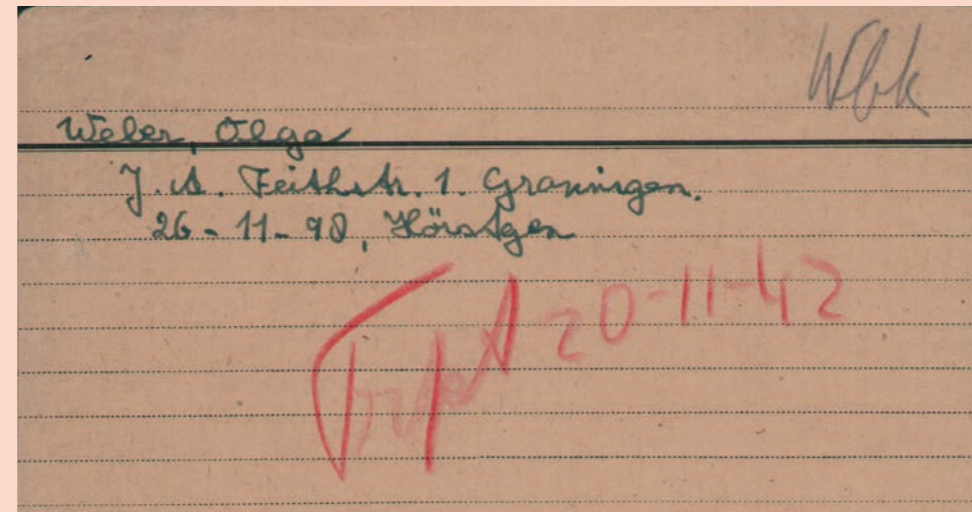 Wbk
Weber, Olga
J. A. Feithstr. 1. Groningen.
26-11-98, Hörstgen
Trspt 20-11-42